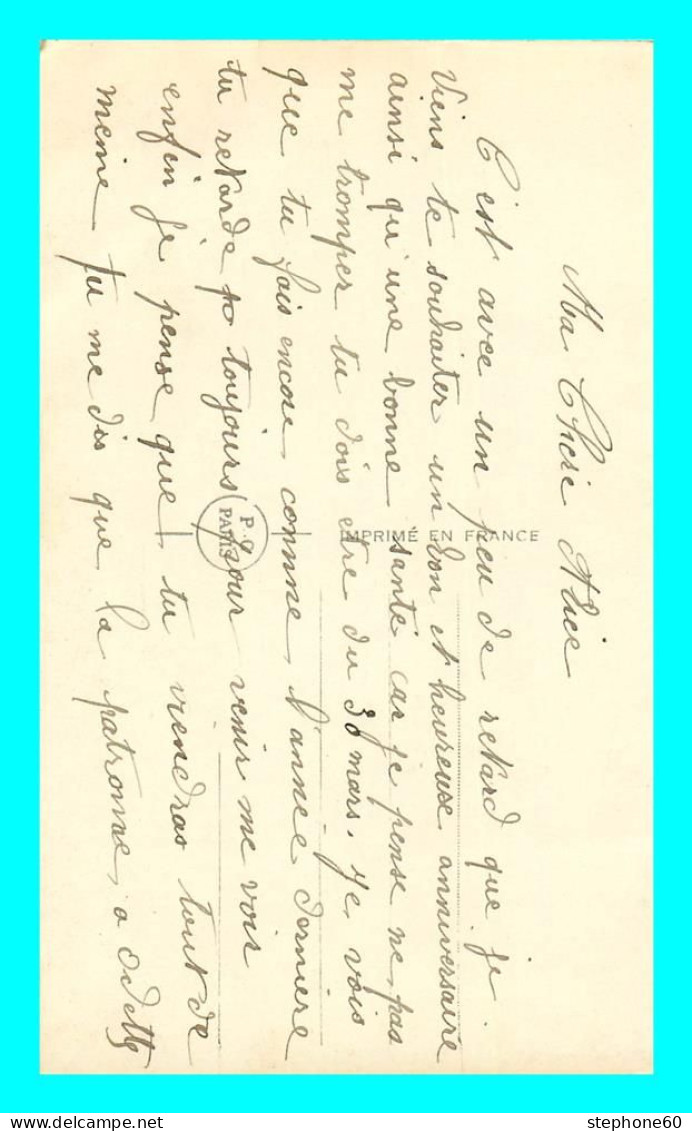 Ma Cherie Alice
C'est avec un peu de retard que je
viens te souhaiter un bon et heureuse anniversaire
ainsi qu'une bonne santé car je pense ne pas
me tromper tu dois etre du 30 mars. Je vois
que tu fais encore comme l'année derniere
tu retarde toujours pour venir me voir
enfin je pense que tu viendras tout de
meme tu me dis que la patronne a odette
IMPRIMÉ EN FRANCE
P.C
PARIS
stephone60